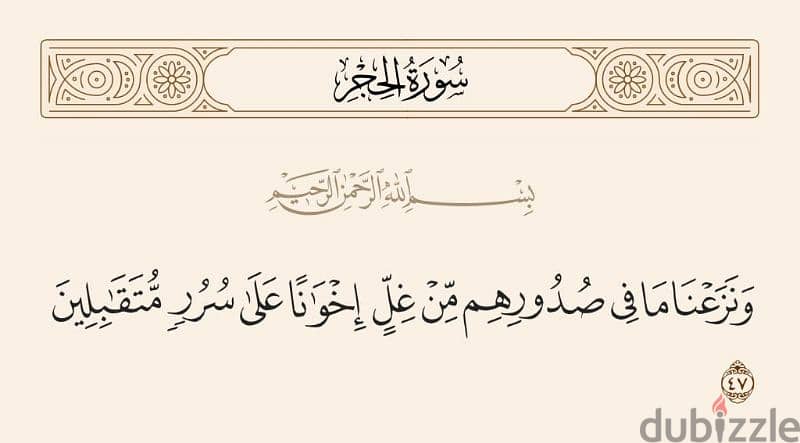 سُورَةُ الحِجْرِ
بِسْمِ اللَّهِ الرَّحْمَٰنِ الرَّحِيمِ
وَنَزَعْنَا مَا فِي صُدُورِهِم مِّنْ غِلٍّ إِخْوَٰنًا عَلَىٰ سُرُرٍ مُّتَقَٰبِلِينَ
٤٧
dubizzle